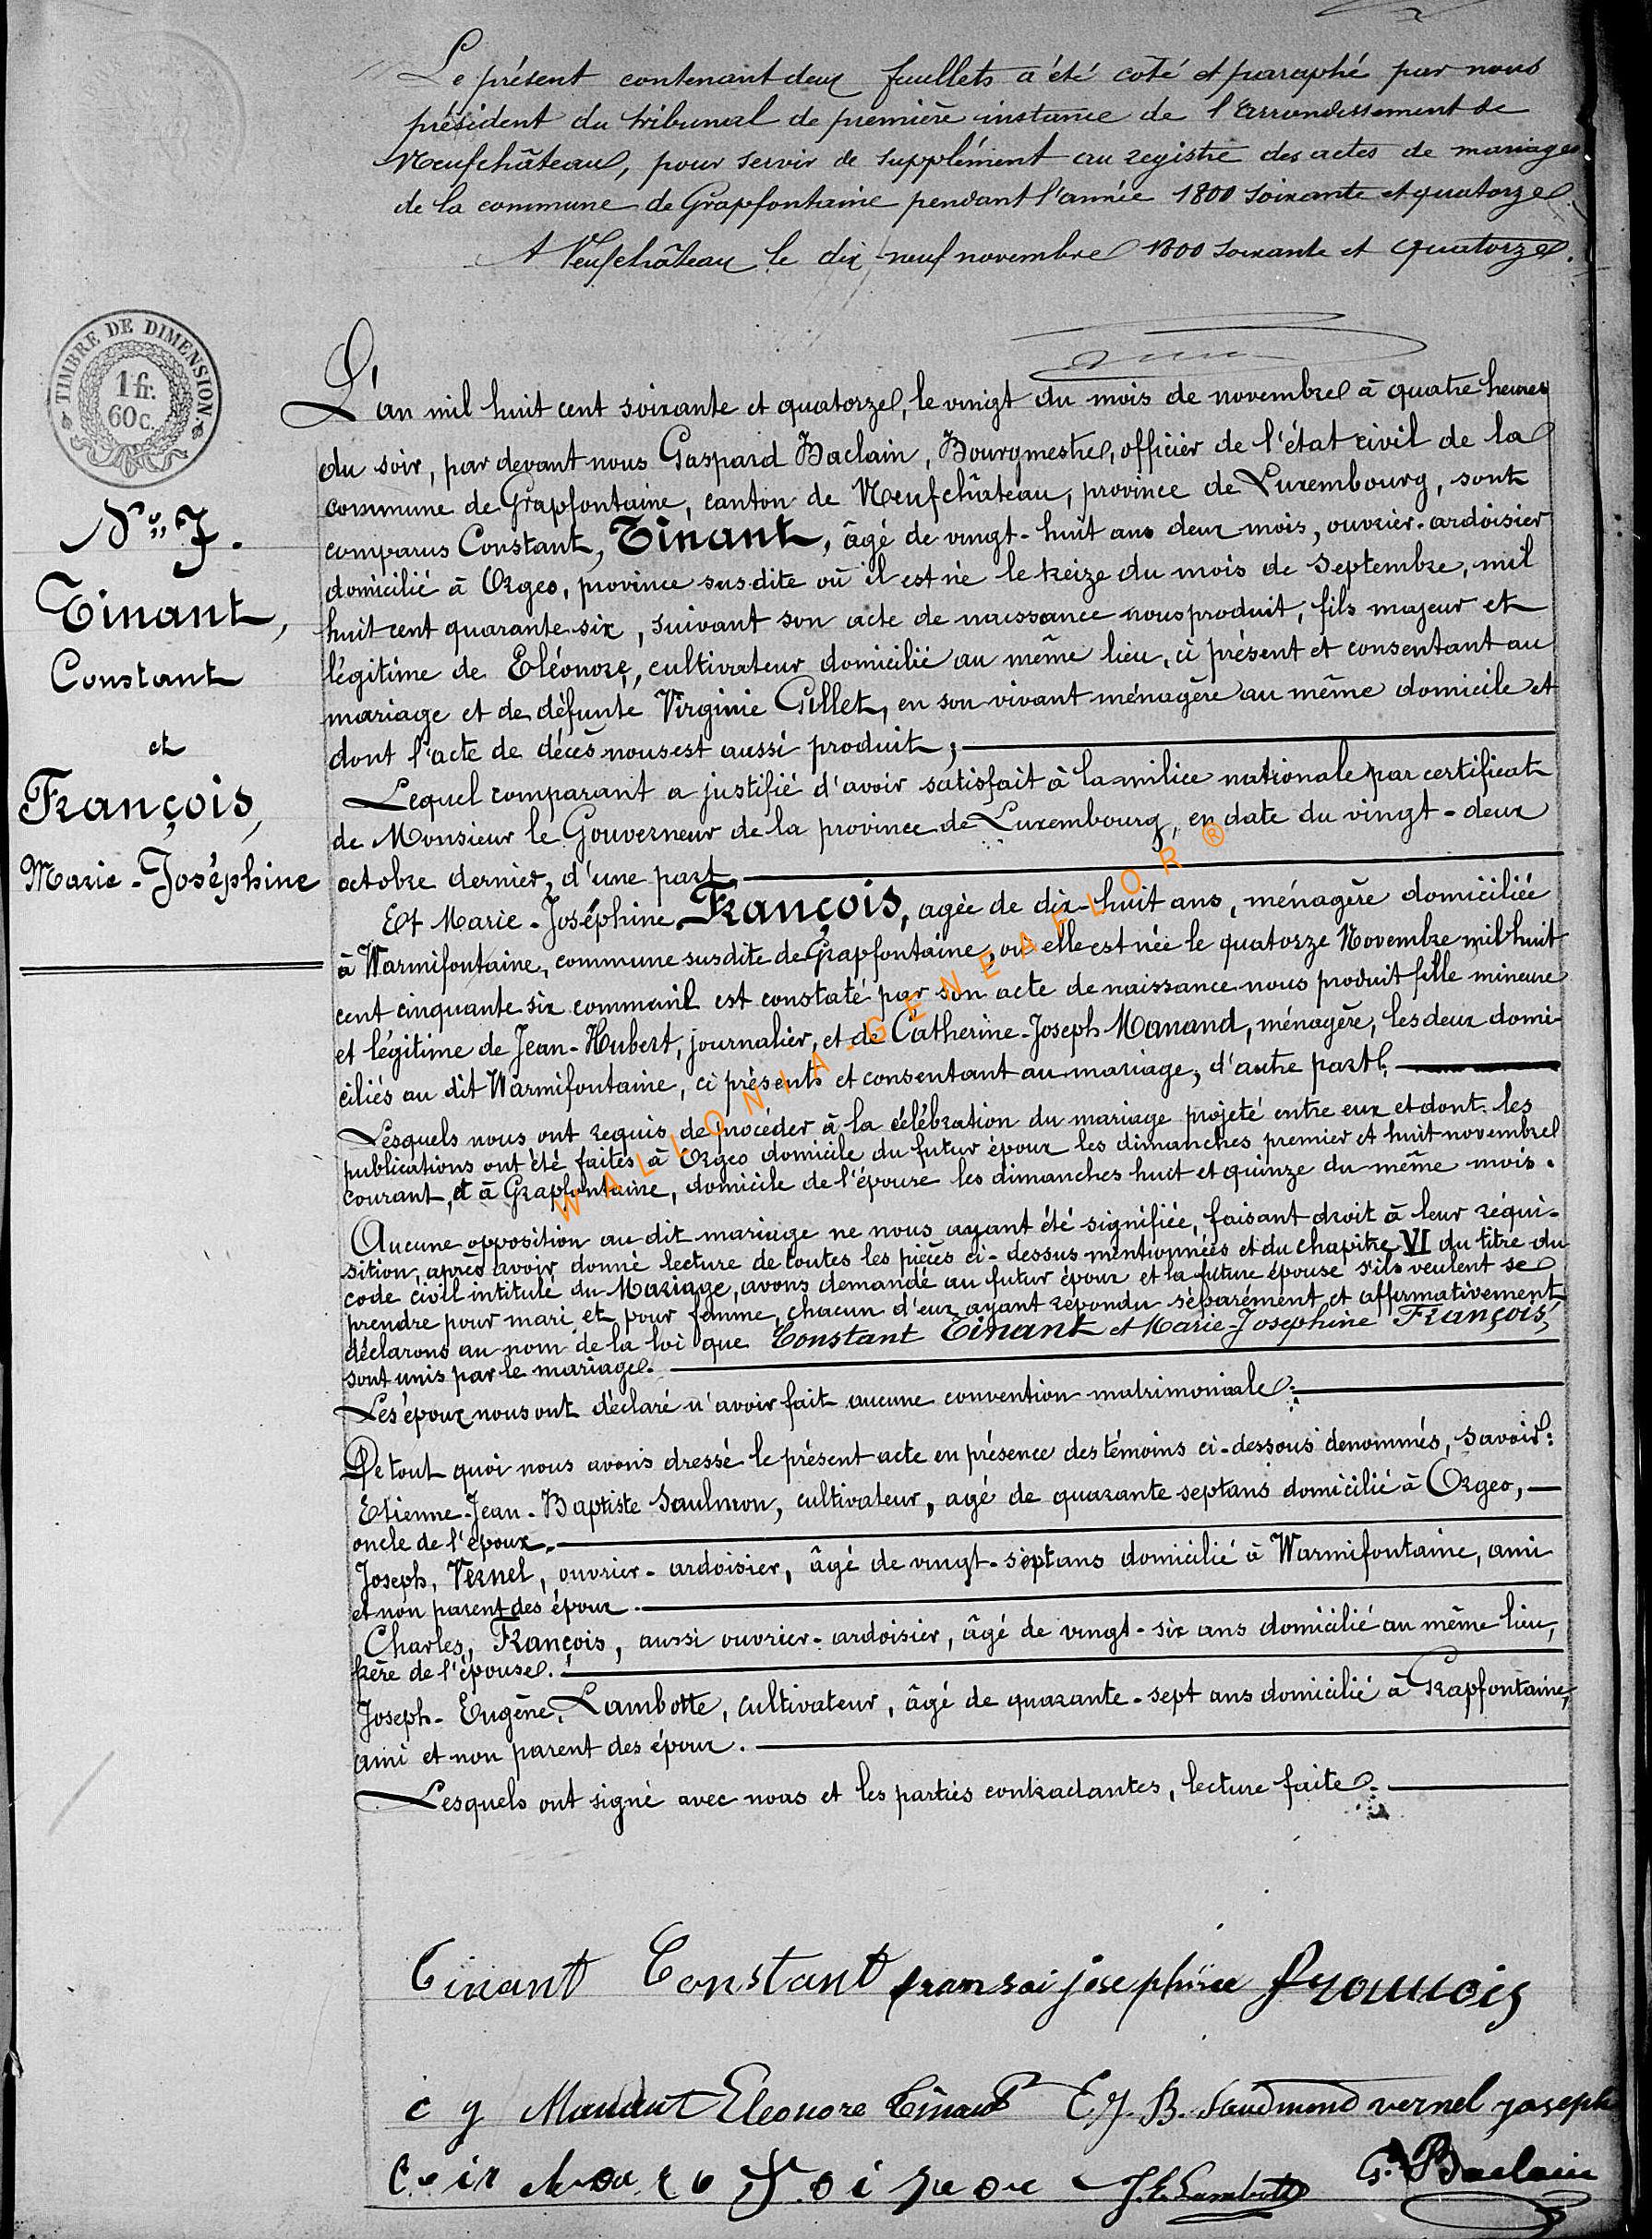 Le présent contenant deux feuillets a été coté et paraphé par nous
président du tribunal de première instance de l'Arrondissement de
Neufchâteau, pour servir de supplément au registre des actes de mariages
de la commune de Grapfontaine pendant l'année 1800 soixante et quatorze
A Neufchâteau le dix-neuf novembre 1800 soixante et quatorze.
TIMBRE DE DIMENSION
1 fr.
60 c.
L'an mil huit cent soixante et quatorze, le vingt du mois de novembre à quatre heures
du soir, par devant nous Gaspard Baclain, Bourgmestre, officier de l'état civil de la
commune de Grapfontaine, canton de Neufchâteau, province de Luxembourg, sont
comparus Constant, Tinant, âgé de vingt-huit ans deux mois, ouvrier-ardoisier
domicilié à Orgeo, province susdite où il est né le treize du mois de Septembre, mil
huit cent quarante-six, suivant son acte de naissance nous produit, fils majeur et
légitime de Eléonore, cultivateur domicilié au même lieu, ci présent et consentant au
mariage et de défunte Virginie Gillet, en son vivant ménagère au même domicile et
dont l'acte de décès nous est aussi produit;
Lequel comparant a justifié d'avoir satisfait à la milice nationale par certificat
de Monsieur le Gouverneur de la province de Luxembourg, en date du vingt-deux
octobre dernier, d'une part
Et Marie-Joséphine François, agée de dix-huit ans, ménagère domiciliée
à Warmifontaine, commune susdite de Grapfontaine, où elle est née le quatorze Novembre mil huit
cent cinquante six comme il est constaté par son acte de naissance nous produit fille mineure
et légitime de Jean-Hubert, journalier, et de Catherine-Joseph Manand, ménagère, les deux domi-
ciliés au dit Warmifontaine, ci présents et consentant au mariage, d'autre part.
Lesquels nous ont requis de procéder à la célébration du mariage projeté entre eux et dont les
publications ont été faites à Orgeo domicile du futur époux les dimanches premier et huit novembre
courant, et à Grapfontaine, domicile de l'épouse les dimanches huit et quinze du même mois.
Aucune opposition au dit mariage ne nous ayant été signifiée, faisant droit à leur réqui-
sition, après avoir donné lecture de toutes les pièces ci-dessus mentionnées et du chapitre VI du titre du
code civil intitulé du Mariage, avons demandé au futur époux et la future épouse s'ils veulent se
prendre pour mari et pour femme, chacun d'eux ayant répondu séparément et affirmativement
déclarons au nom de la loi que Constant Tinant et Marie-Joséphine François,
sont unis par le mariage.
Les époux nous ont déclaré n'avoir fait aucune convention matrimoniale.
De tout quoi nous avons dressé le présent acte en présence des témoins ci-dessous denommés, savoir:
Etienne-Jean-Baptiste Saulmon, cultivateur, agé de quarante sept ans domicilié à Orgeo,
oncle de l'époux.
Joseph, Vernel, ouvrier-ardoisier, âgé de vingt-sept ans domicilié à Warmifontaine, ami
et non parent des époux.
Charles, François, aussi ouvrier-ardoisier, âgé de vingt-six ans domicilié au même lieu,
frère de l'épouse.
Joseph-Eugène, Lambotte, cultivateur, âgé de quarante-sept ans domicilié à Grapfontaine,
ami et non parent des époux.
Lesquels ont signé avec nous et les parties contractantes, lecture faite.
N° 7.
Tinant,
Constant
et
François,
Marie-Joséphine
WALLONIA-GENEAFLOR®
Tinant Constant fransoi josephine françois
c j Manant Eleonore Tinant E. J. B. Saudmond vernel joseph
J. E. Lambotte G. Baclain